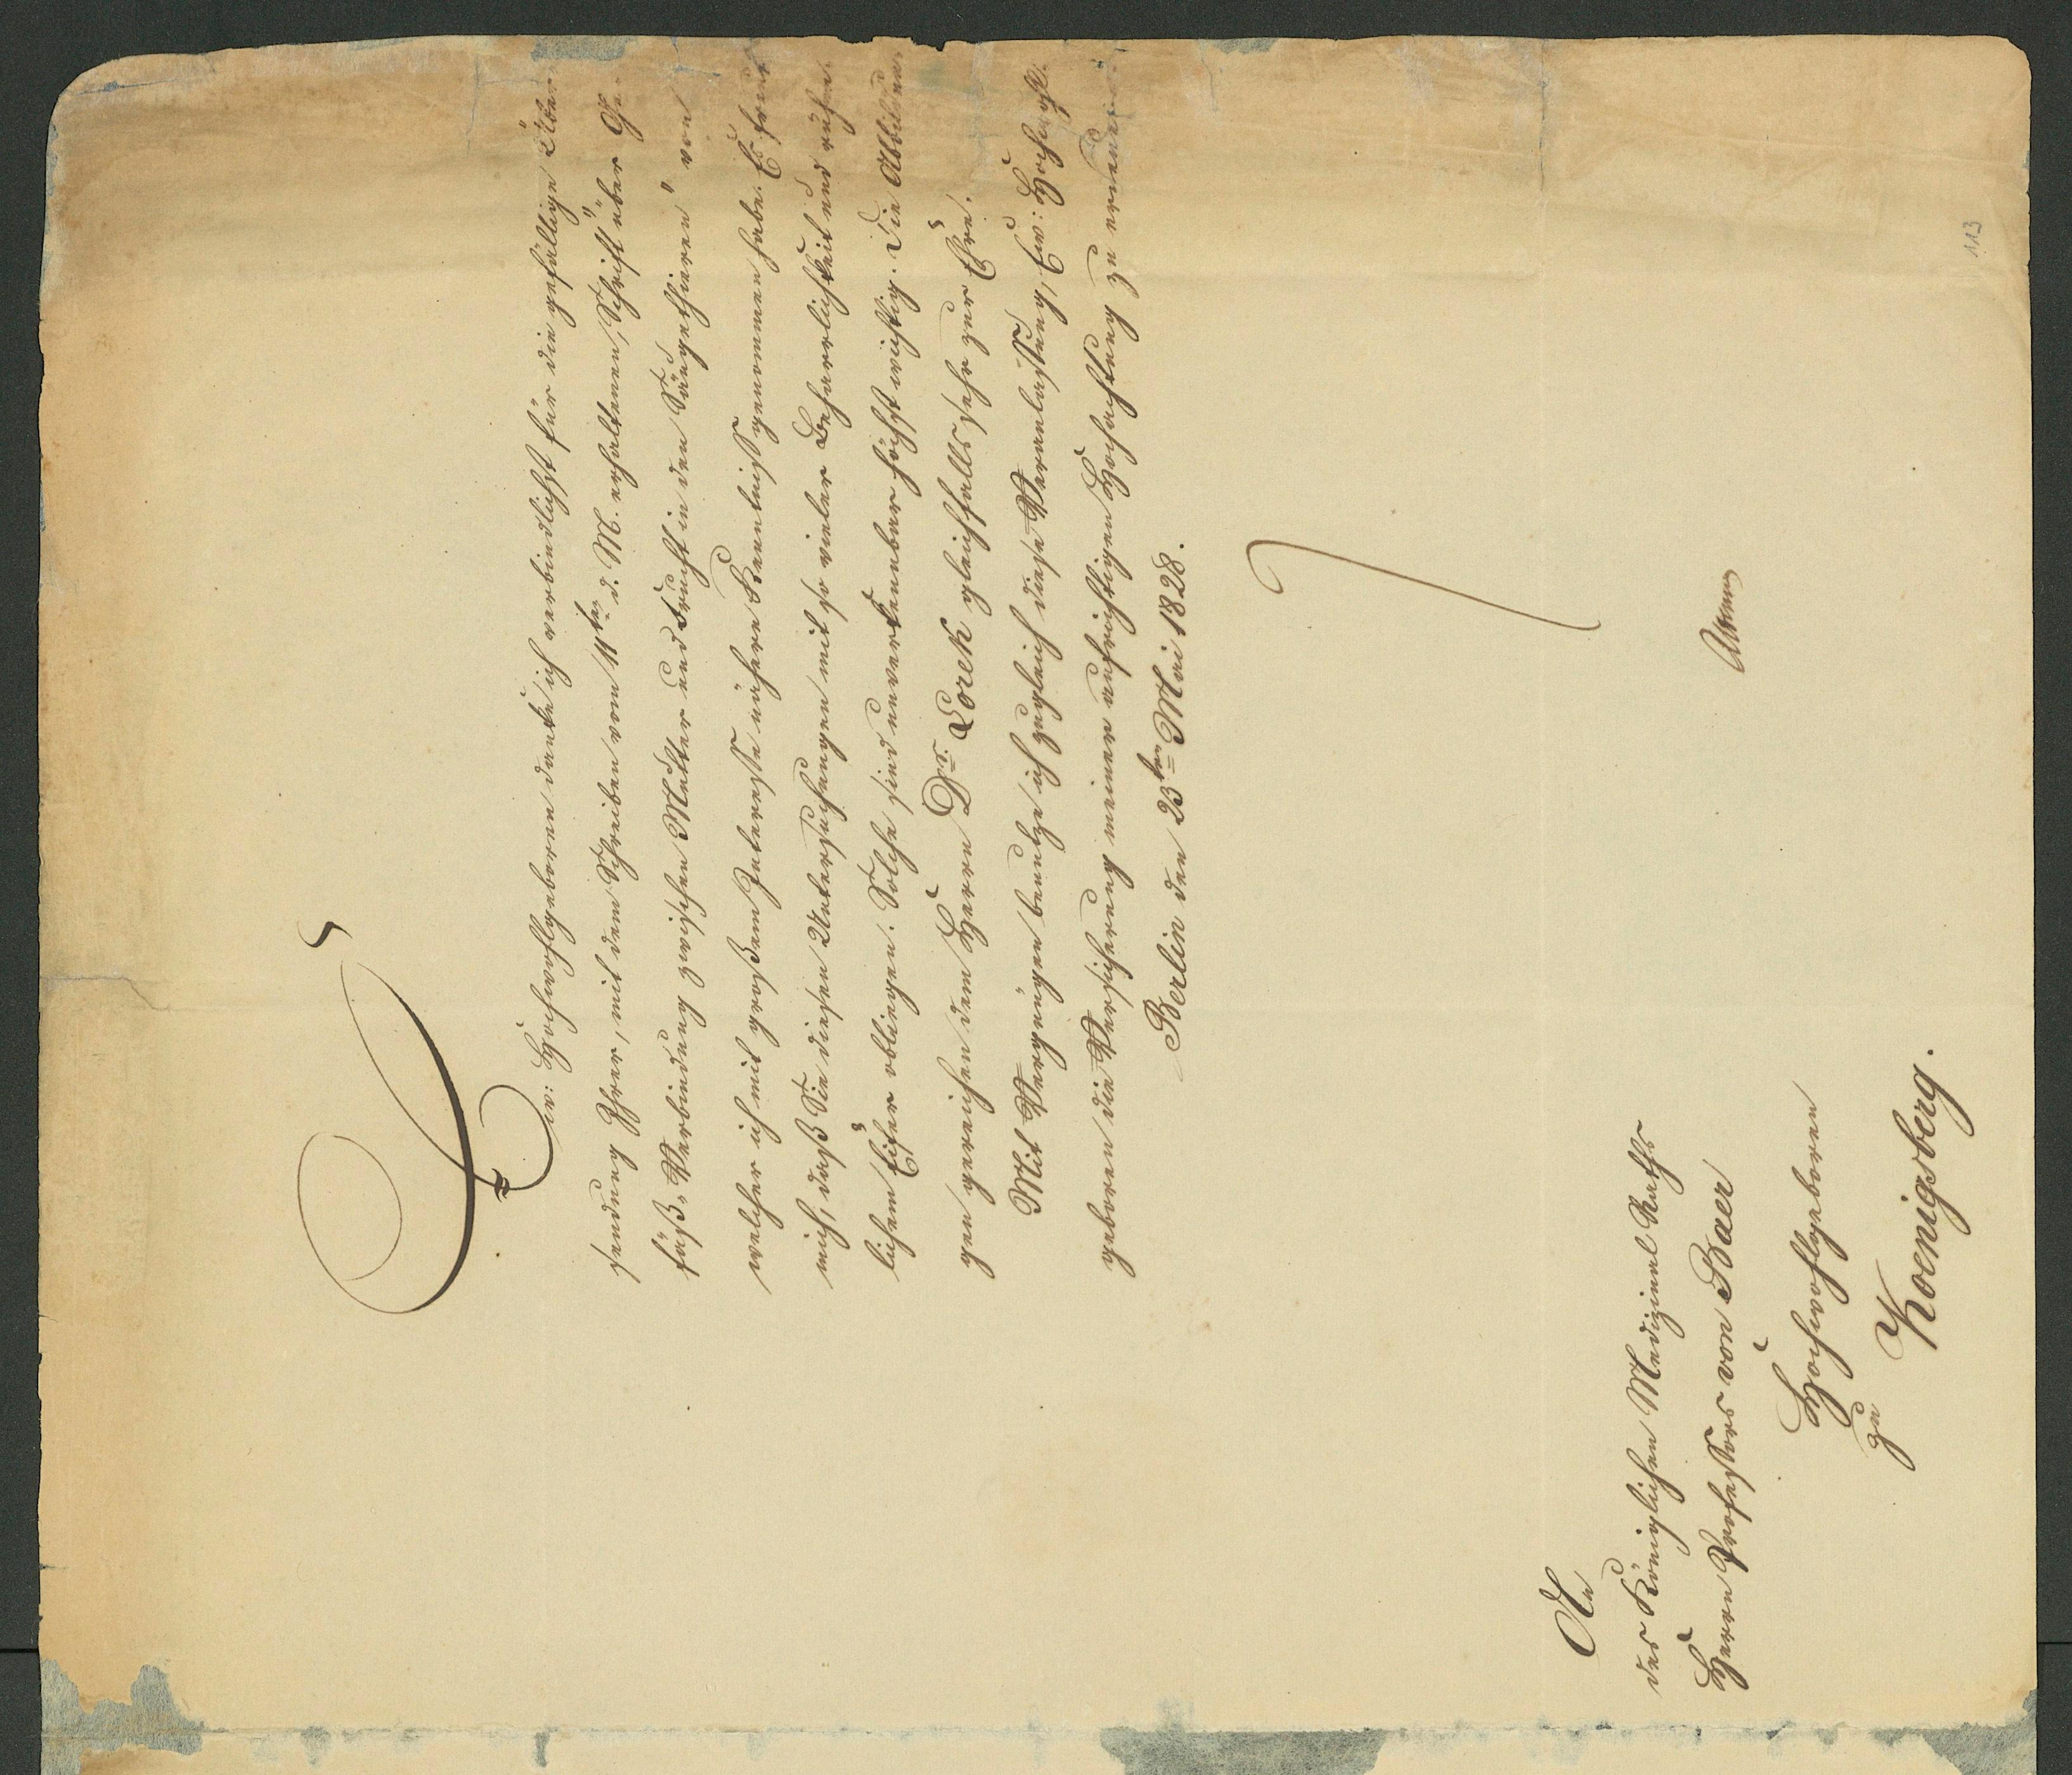 Ew: Hochwohlgeboren danke ich verbindlichst für die gefällige Über-
sendung Ihrer, mit dem Schreiben vom 11ten d. M. erhaltenen, Schrift "über Ge-
fäß-Verbindung zwischen Mutter und Frucht in den Säugethieren" von
welcher ich mit großem Interesse nähere Kenntniß genommen habe. Es freut
mich, daß Sie diesen Untersuchungen mit so vieler Beharrlichkeit und
lichem Eifer obliegen. Solche sind unverkennbar höchst wichtig. Die Abbildun-
gen gereichen dem Herrn Dr. Lorek gleichfalls sehr zur Ehre.
Mit Vergnügen benutze ich zugleich diese Veranlassung, Ew: Hochwohl-
geboren die Versicherung meiner aufrichtigen Hochachtung zu erneuern.
Berlin den 23ten Mai 1828.
Altenstein
An
des Königlichen Medizinal Raths
Herrn Professors von Baer
Hochwohlgeboren
zu
Koenigsberg.
113